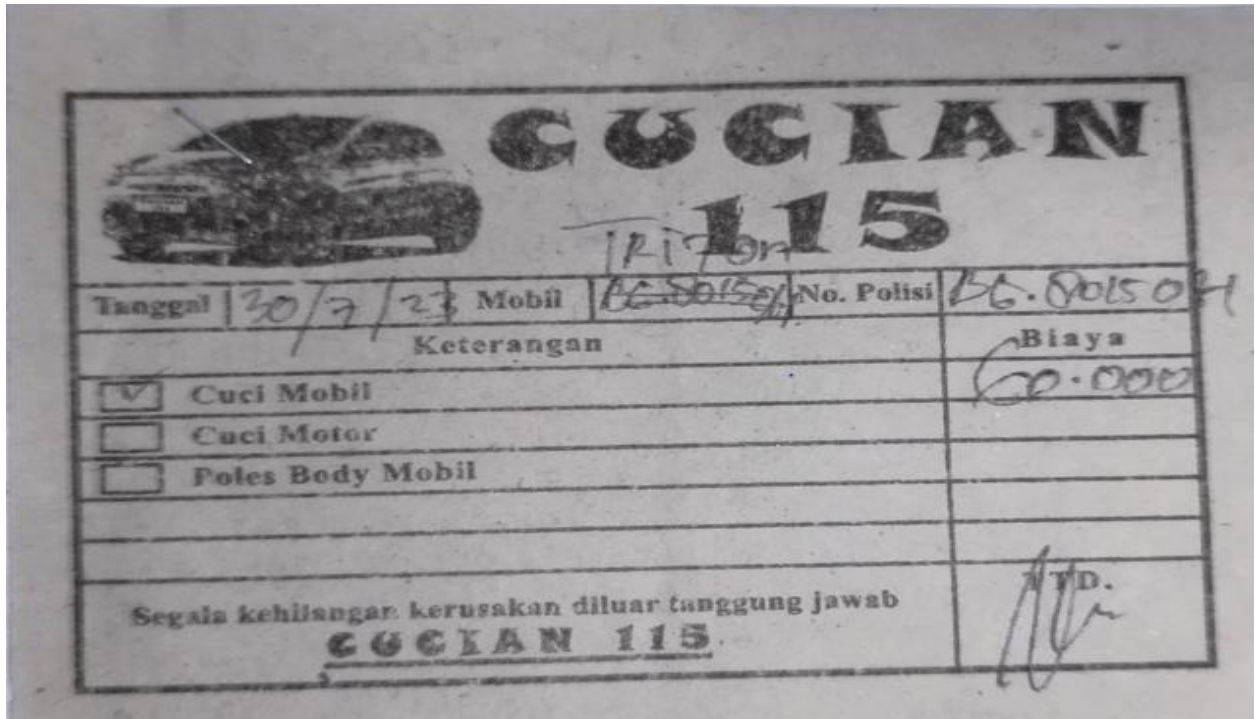 CUCIAN
115
TRITON
Tanggal 30/7/23 Mobil No. Polisi BG. 8015 OH
Keterangan Biaya
Cuci Mobil 60.000
Cuci Motor
Poles Body Mobil
Segala kehilangan kerusakan diluar tanggung jawab
CUCIAN 115
TTD.